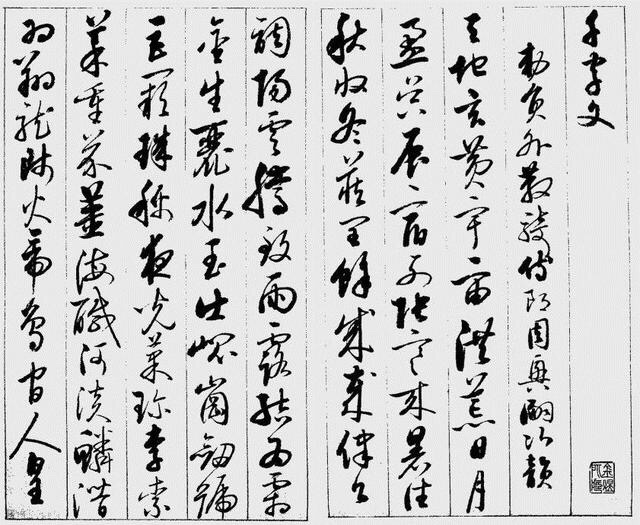 千字文
勅員外散騎侍郎周興嗣次韻
天地玄黃宇宙洪荒日月
盈昃辰宿列張寒來暑往
秋收冬藏閏餘成歲律呂
調陽雲騰致雨露結為霜
金生麗水玉出崐崗劍號
巨闕珠稱夜光菓珍李柰
菜重芥薑海鹹河淡鱗潛
羽翔龍師火帝鳥官人皇